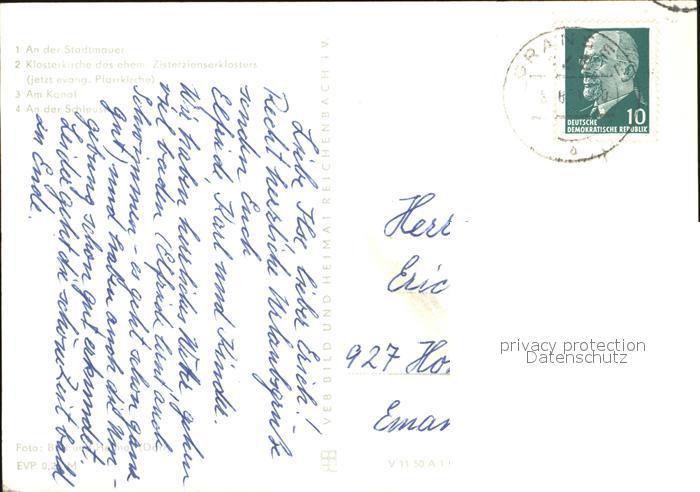 1 An der Stadtmauer
2 Klosterkirche des ehem. Zisterzienserklosters
(jetzt evang. Pfarrkirche)
3 Am Kanal
4 An der Schleuse
Liebe Ilse, lieber Erich!
Recht herzliche Urlaubsgrüße
senden Euch
Elfried, Karl und Kinder.
Wir haben herrliches Wetter, gehen
viel baden (Elfriede lernt auch
Schwimmen - es geht schon ganz
gut) und haben auch die Um-
gebung schon gut erkundet.
Leider geht die schöne Zeit bald
zu Ende.
Foto:
EVP 0,
VEB BILD UND HEIMAT REICHENBACH i. V.
V 11 50 A 1
GRAN
10
DEUTSCHE
DEMOKRATISCHE REPUBLIK
Herr
Eric
927 Ho
Eman
privacy protection
Datenschutz